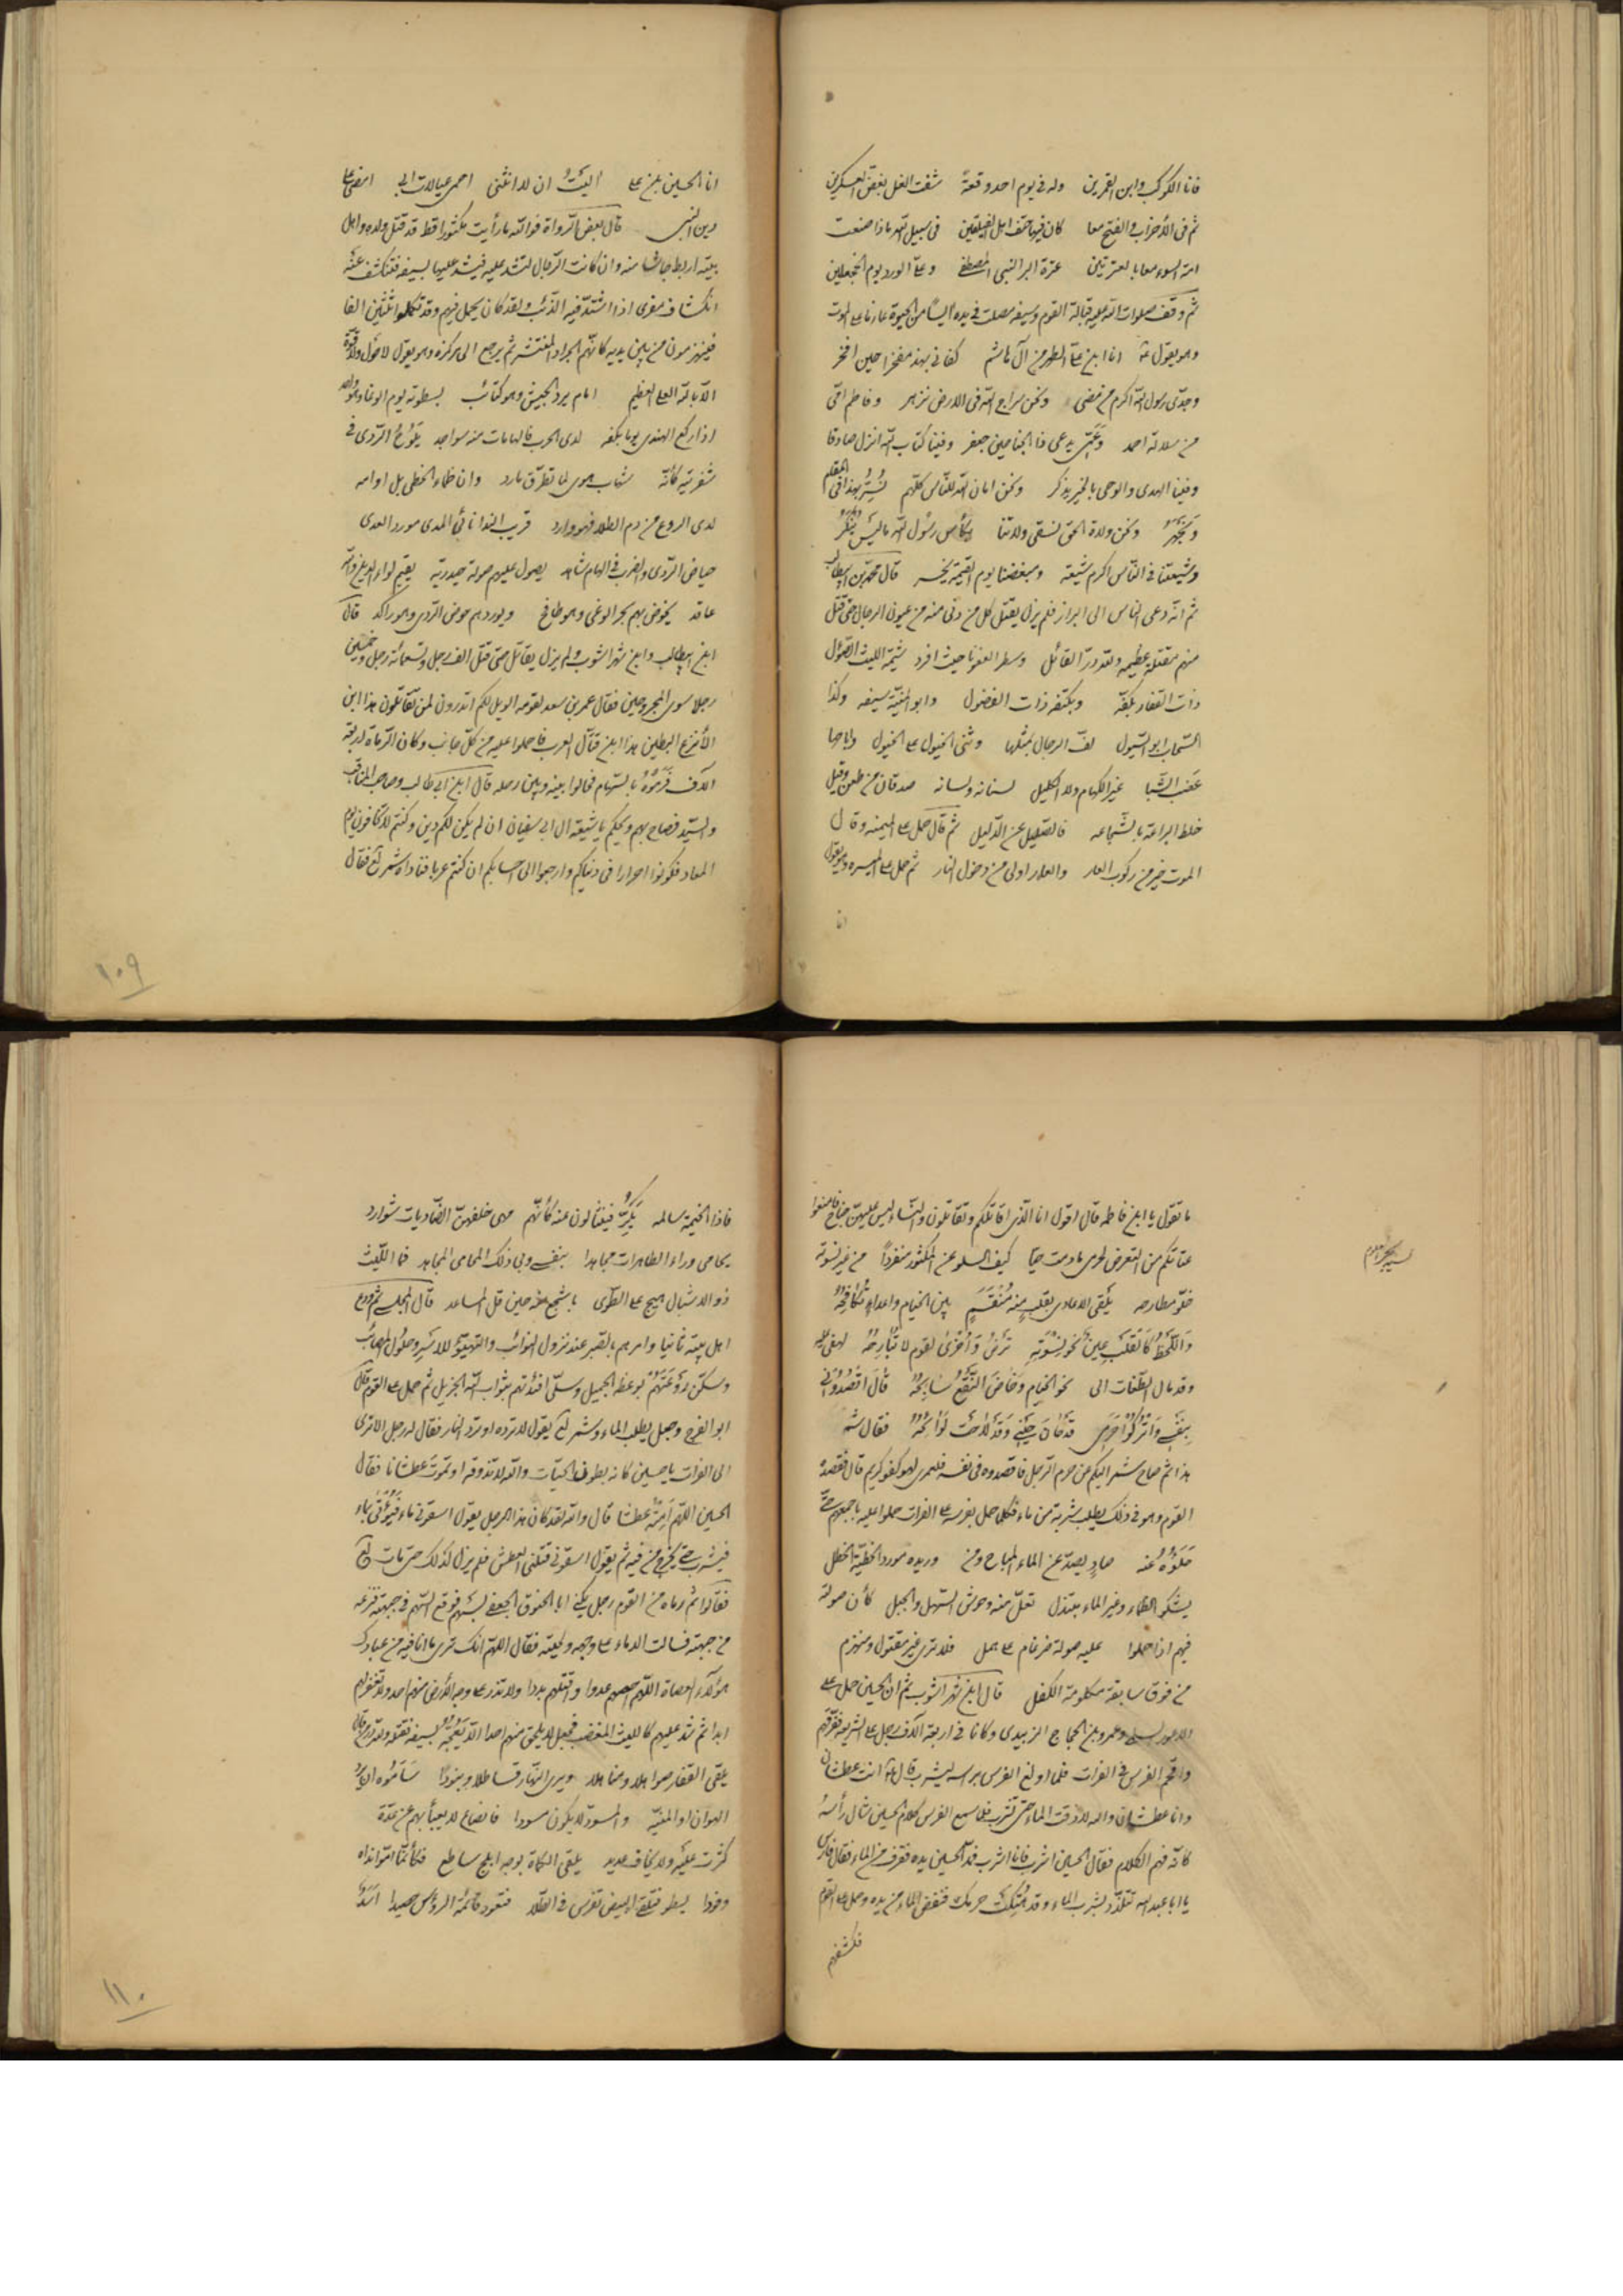 فانا الكوكب وابن القمرين وله في يوم احد وقعة شفت الغل بغض العسكرين
ثم في الأحزاب والفتح معا كان فيها حتف اهل الفيلقين في سبيل الله ماذا صنعت
امة السوء معا بالعترتين عترة البر النبي المصطفى وعلى الورد يوم الجحفلين
ثم وقف صلوات الله عليه قبالة القوم وسيفه مصلت في يده آيسا من الحيوة عازما على الموت
وهو يقول انا ابن على الطهر من آل هاشم كفاني بهذا مفخرا حين افخر
وجدى رسول الله اكرم من مضى ونحن سراج الله في الارض نزهر وفاطم امى
من سلالة احمد وعمى يدعى ذا الجناحين جعفر وفينا كتاب الله انزل صادقا
وفينا الهدى والوحى بالخير يذكر ونحن امان الله للناس كلهم نسر بهذا فى
ونجهر ونحن ولاة الحوض نسقى ولاتنا بكأس رسول الله ما ليس ينكر
وشيعتنا في الناس اكرم شيعة ومبغضنا يوم القيمة يخسر قال محمد بن ابيطالب
ثم انه دعى الناس الى البراز فلم يزل يقتل كل من دنى منه من عيون الرجال حتى قتل
منهم مقتلة عظيمة ولله در القائل
ذات الفقار بكفه وبكتفه ذات الفضول وابو المنية سيفه وكذا
السحاب ابو السيول لف الرجال بمثلها وثنى الخيول على الخيول
عضب الشبا غير الكهام ولا الكليل لسنانه ولسانه صدقان من طعن وقيل
خلط البراعة بالشجاعة فالصليل عن الدليل ثم قال حمل على الميمنة وقال
الموت خير من ركوب العار والعار اولى من دخول النار ثم حمل على الميسرة وهو يقول
انا
انا الحسين بن على اليت ان لا انثنى احمى عيالات ابى امضى على
دين النبى قال بعض الرواة فوالله ما رأيت مكثورا قط قد قتل ولده واهل
بيته اربط جاشا منه وان كانت الرجال لتشد عليه فيشد عليها بسيفه فتنكشف عنه
انكشاف معزى اذا اشتد فيه الذئب ولقد كان يحمل فيهم وقد تكملوا ثلثين الفا
فينهزمون من بين يديه كانهم الجراد المنتشر ثم يرجع الى مركزه وهو يقول لا حول ولا قوة
الا بالله العلى العظيم امام يرد الجيش وهو كتائب بسطوته يوم الوغا وهو واحد
اذا ركع الهندى يوما بكفه لدى الحرب فالهامات منه سواجد يلوح الردى في
شفرتيه كأنه شهاب هوى لما تطرق مارد وان ظمأ الخطى بل اوامه
لدى الروع من دم الطلا فهو وارد قريب الندا نائى المدى مورد العدى
حياض الردى والضرب في الهام شاهد يصول عليهم صولة حيدرية يقيم لواء الدين والله
عاقد يخوض بهم بحر الوغى وهو طافح ويوردهم حوض الردى وهو راكد قال
ابن ابيطالب وابن شهراشوب ولم يزل يقاتل حتى قتل الف رجل وتسعمائة رجل وخمسين
رجلا سوى المجروحين فقال عمر بن سعد لقومه الويل لكم اتدرون لمن تقاتلون هذا ابن
الأنزع البطين هذا ابن قتال العرب فاحملوا عليه من كل جانب وكان الرماة اربعة
آلاف فرموه بالسهام فحالوا بينه وبين رحله قال ابن ابى طالب وصاحب المناقب
والسيد فصاح بهم ويحكم يا شيعة ال ابى سفيان ان لم يكن لكم دين وكنتم لا تخافون يوم
المعاد فكونوا احرارا فى دنياكم وارجعوا الى احسابكم ان كنتم عربا فناداه شمر لع فقال
١٠٩
ما تقول يا ابن فاطمة قال اقول انا الذى اقاتلكم وتقاتلونى والنساء ليس عليهن جناح فامنعوا
عتاتكم من التعرض لحرمى ما دمت حيا كيف السلو عن المكثور منفردا من غير نسوته
خلو مطارحه يلقى الاعادى بقلب منه منقسم بين الخيام واعداء تكافحه
واللحظ كالقلب عين نحو نسوته ترنو واخرى لقوم لا تبارحه لهفى عليه
وقد مال الطغاة الى نحو الخيام وخاض النقع سابحه قال اقصدونى
بنفسى واتركوا حرمى قد حان حينى وقد لاحت لوائحه فقال شمر
هذا ثم صاح شمر اليكم عن حرم الرجل فاقصدوه فى نفسه فلعمرى لهو كفو كريم قال فقصده
القوم وهو فى ذلك يطلب شربة من ماء فكلما حمل بفرسه على الفرات حملوا عليه باجمعهم حتى
حلؤه عنه صاد يصد عن الماء المباح ومن وريده مورد الخطية الخطل
يشكو الظماء وغير الماء مبتذل تعل منه وحوش السهل والجبل كأن صولته
فيهم اذا حملوا عليه صولة ضرغام على همل فلا ترى غير مقتول ومنهزم
من فوق سابقة مكلومة الكفل قال ابن شهراشوب ثم ان الحسين حمل على
الاعور السلمى وعمرو بن الحجاج الزبيدى وكانا فى اربعة آلاف رجل على الشريعة ففرقهم
واقحم الفرس فى الفرات فلما اولغ الفرس براسه ليشرب قال انت عطشان
وانا عطشان والله لا ذقت الماء حتى تشرب فلما سمع الفرس كلام الحسين شال رأسه
كأنه فهم الكلام فقال الحسين اشرب فانا اشرب فمد الحسين يده فغرف من الماء فقال فارس
يا ابا عبد الله تتلذذ بشرب الماء وقد هتكت حرمك فنفض الماء من يده وحمل على القوم
فكشفهم
فاذا الخيمة سالمة يكر فينثالون عنه كأنهم مهى خلفهن الضاريات شوارد
يحامى وراء الطاهرات مجاهدا بنفسى وبى ذلك المحامى المجاهد فما الليث
ذو الاشبال هيج على الطوى باشجع منه حين قل المساعد قال المجلسى ثم ودع
اهل بيته ثانيا وامرهم بالصبر عند نزول النوائب والتهيؤ للاسر وحلول المصائب
وسكن روعتهم بوعظه الجميل وسلى افئدتهم بثواب الله الجزيل ثم حمل على القوم قال
ابو الفرج وجعل يطلب الماء وشمر لع يقول لا ترده او ترد النار فقال له رجل الا ترى
الى الفرات يا حسين كانه بطون الحيات والله لا تذوقه او تموت عطشانا فقال
الحسين اللهم امته عطشا قال والله لقد كان هذا الرجل يقول اسقونى ماء فيؤتى بماء
فيشرب حتى يخرج من فيه ثم يقول اسقونى قتلنى العطش فلم يزل كذلك حتى مات لع
فقالوا ثم رماه من القوم رجل يكنى ابا الحتوف الجعفى بسهم فوقع السهم فى جبهته فنزعه
من جبهته فسالت الدماء على وجهه ولحيته فقال اللهم انك ترى ما انا فيه من عبادك
هؤلاء العصاة اللهم احصهم عددا واقتلهم بددا ولا تذر على وجه الأرض منهم احدا ولا تغفر لهم
ابدا ثم شد عليهم كالليث المغضب فجعل لا يلحق منهم احدا الا بعجه بسيفه فقتله ولله در من قال
يلقى القفار صواهلا ومناهلا ويرى النهار قساطلا وبنودا ساموه ان يرد
الهوان او المنية والمسود لا يكون مسودا فانصاع لا يعبأ بهم عن عدة
كثرت عليه ولا يخاف عديد يلقى الكماة بوجه ابلج ساطع فكأنما امّوا نداه
وفودا يسطو فتلقى البيض تغرس فى الطلا فتعود قائمة الرؤس حصيدا اسد
١١٠